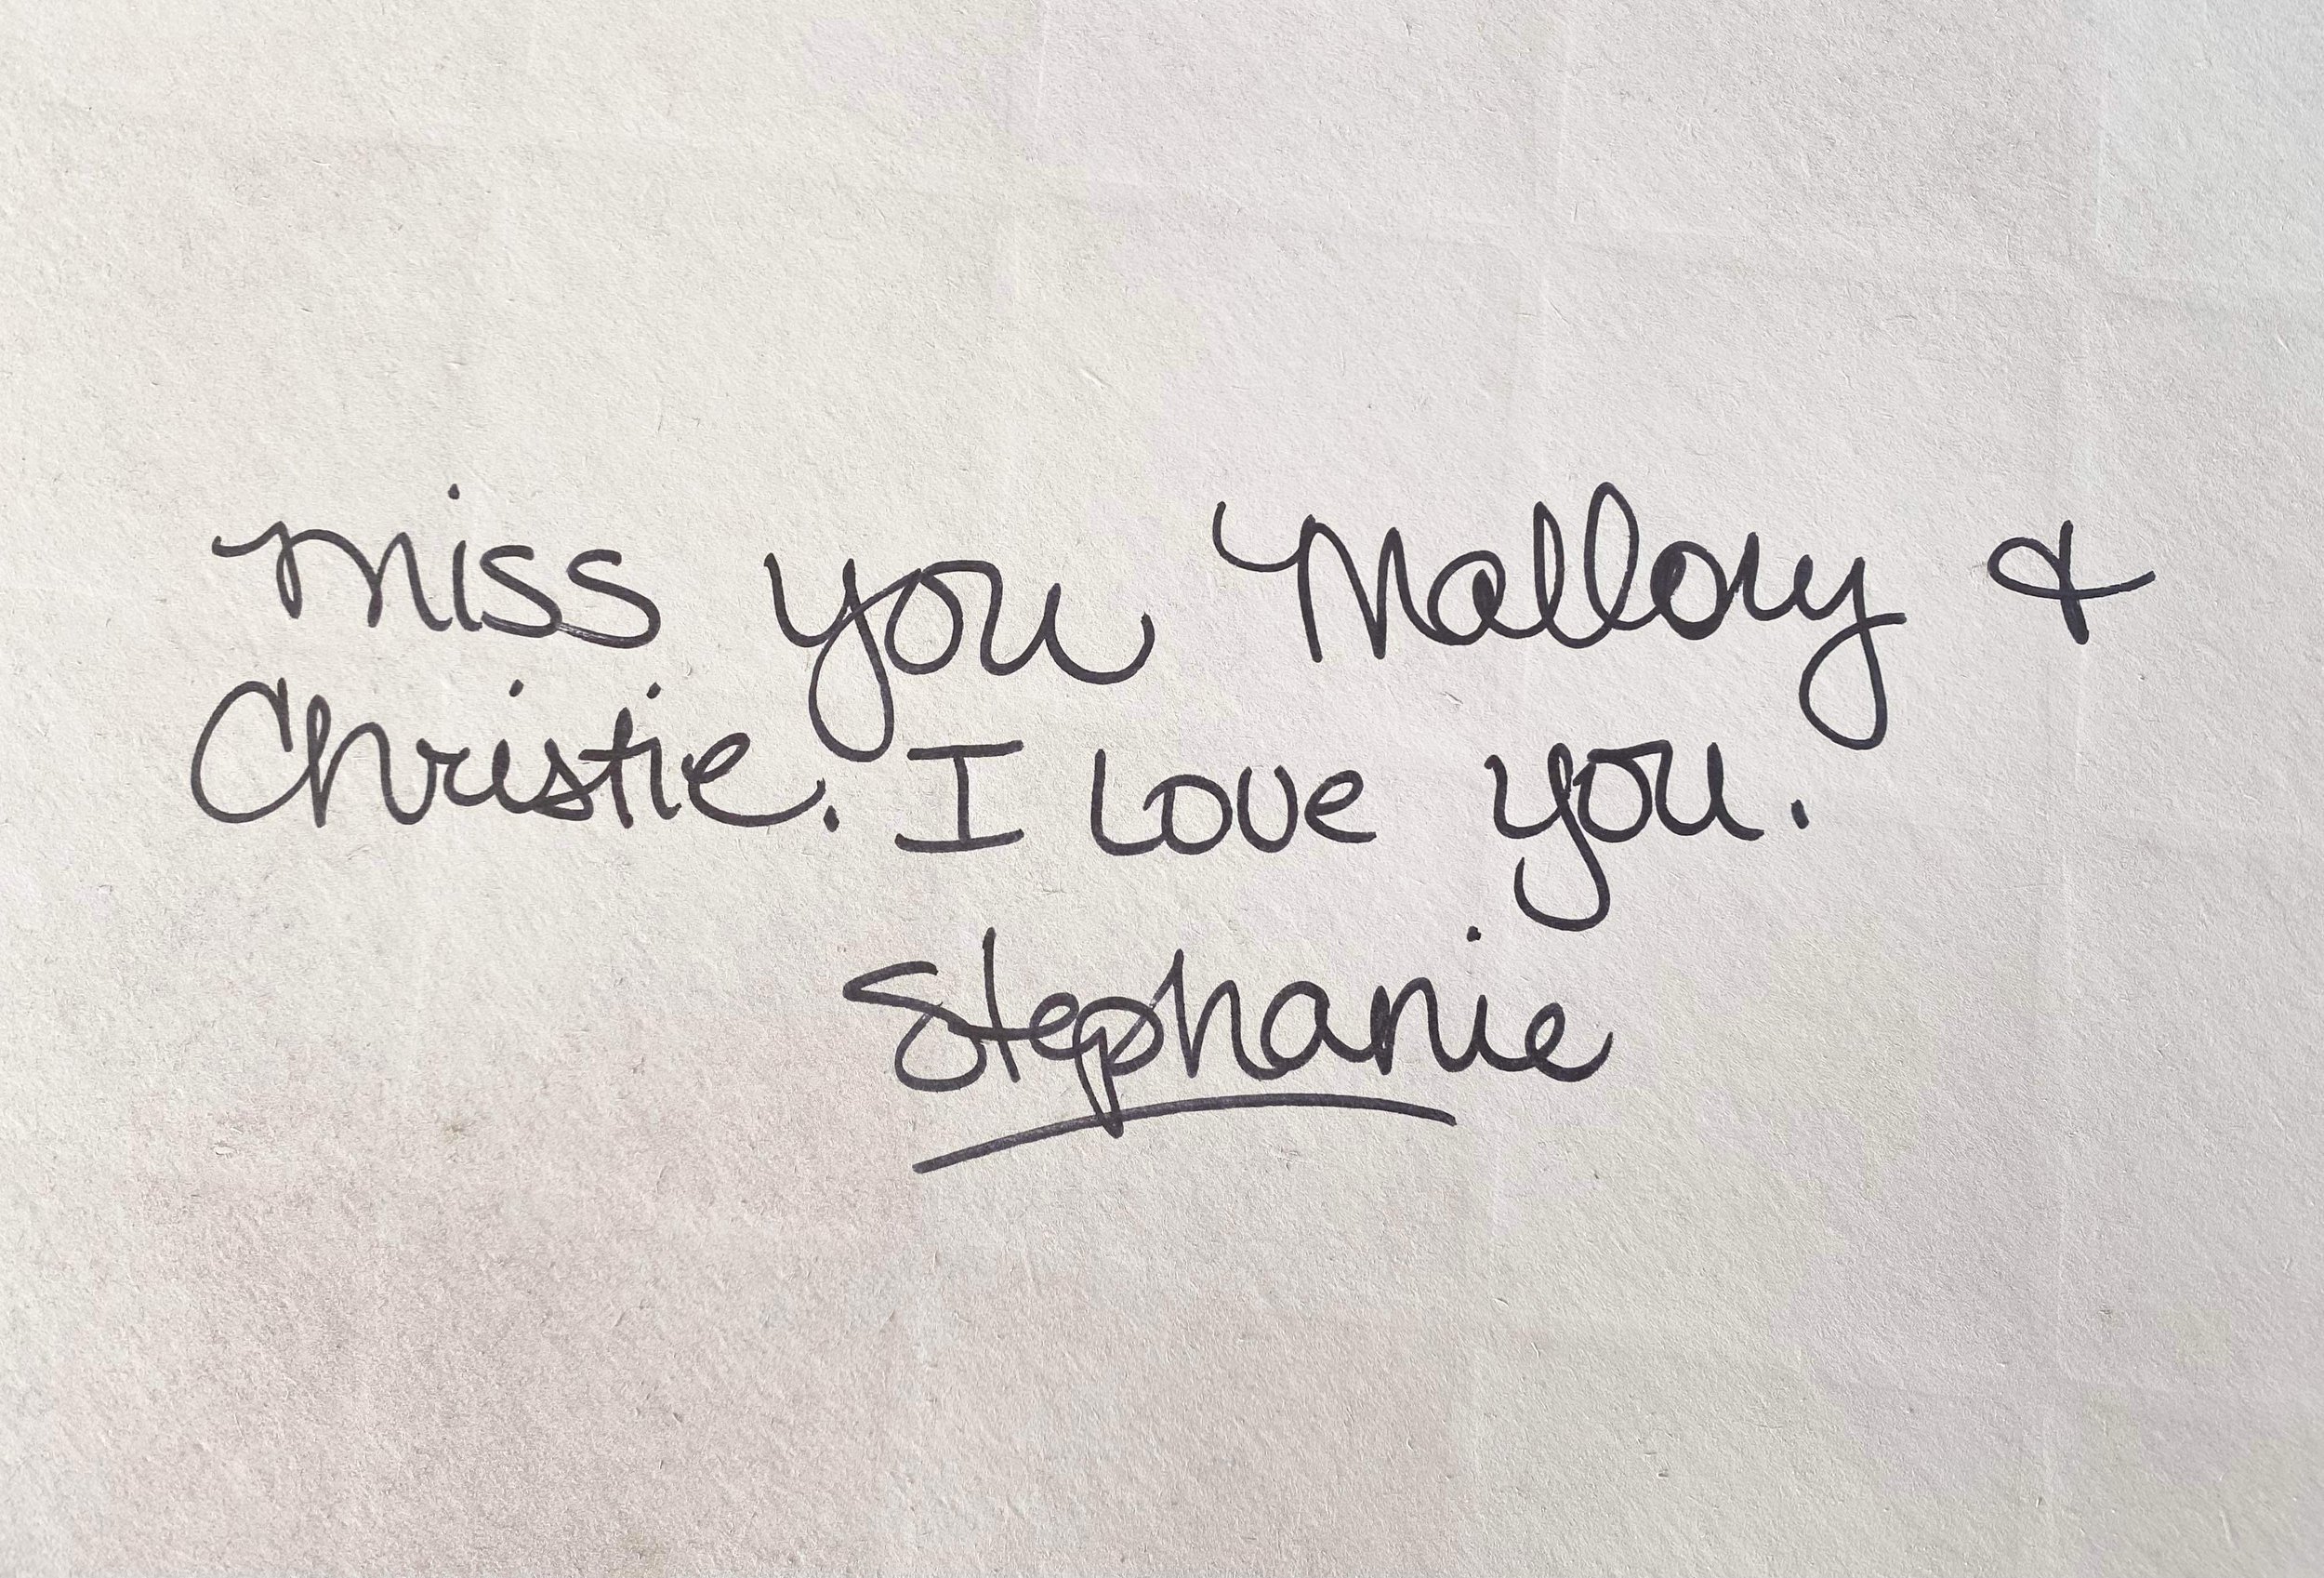 miss you Mallory &
Christie. I Love you.
Stephanie